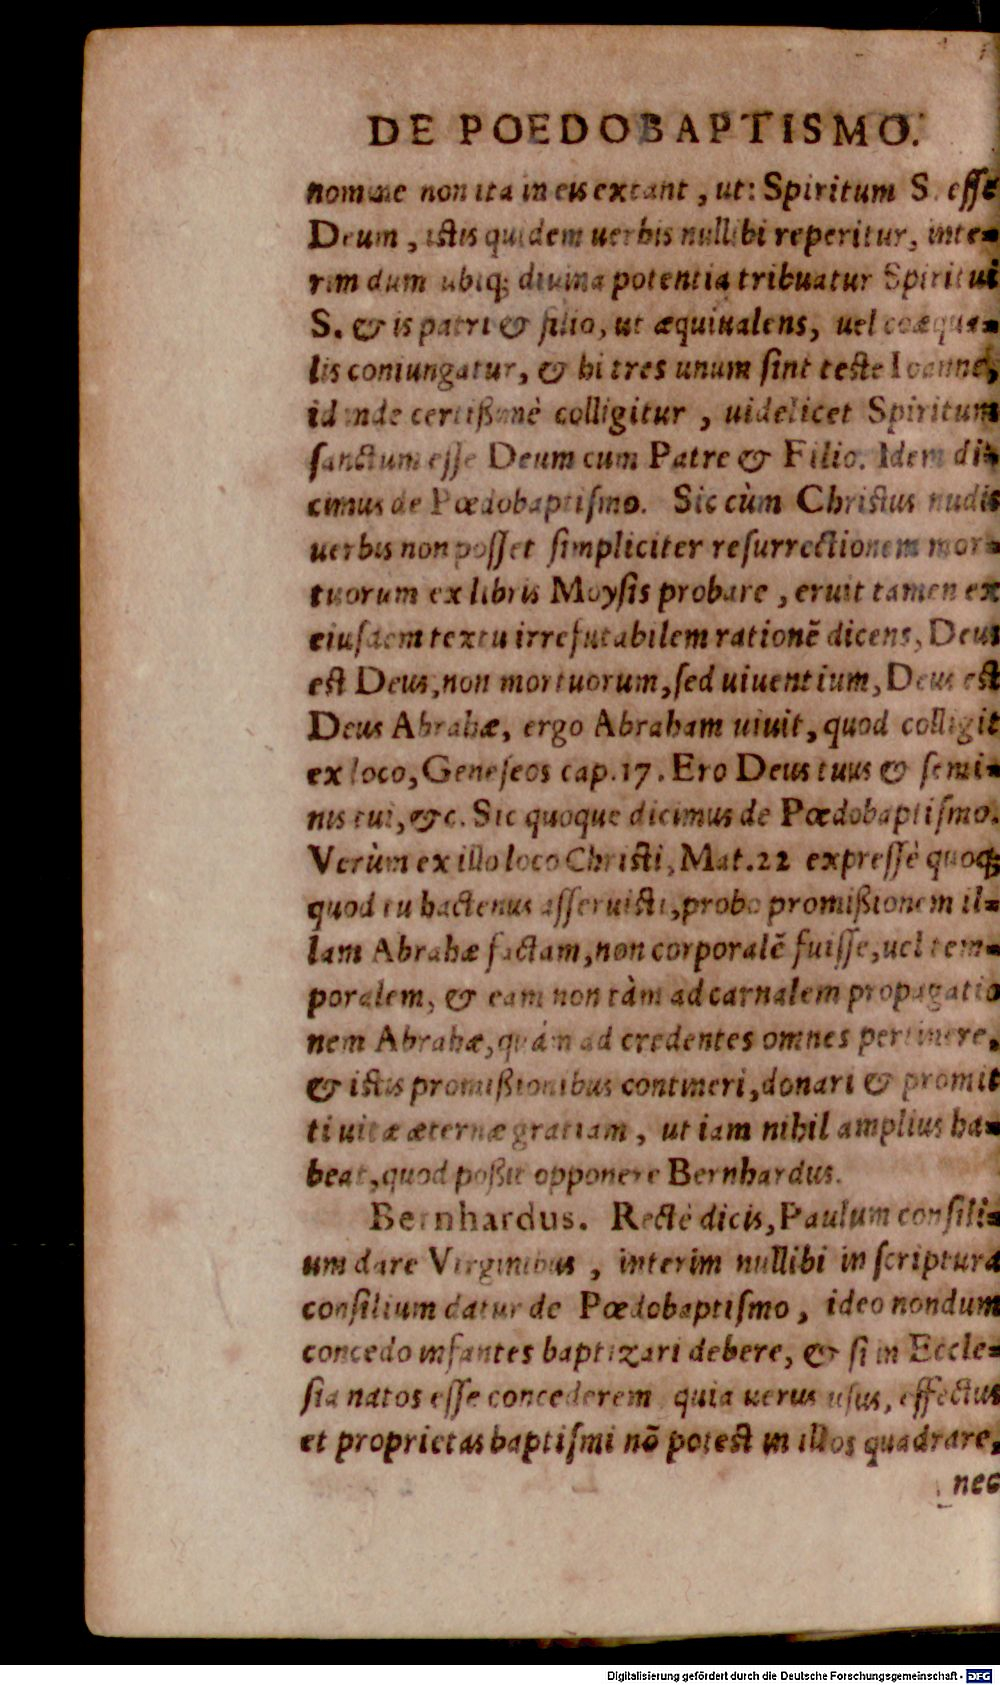 DE POEDOBAPTISMO.
nomine non ita in eis extant, ut: Spiritum S. esse
Deum, istis quidem uerbis nullibi reperitur, inte-
rim dum ubiq; diuina potentia tribuatur Spiritui
S. & is patri & filio, ut æquiualens, uel coæqua-
lis coniungatur, & hi tres unum sint teste Ioanne,
id inde certißimè colligitur, uidelicet Spiritum
sanctum esse Deum cum Patre & Filio. Idem di-
cimus de Pœdobaptismo. Sic cùm Christus nudis
uerbis non posset simpliciter resurrectionem mor-
tuorum ex libris Moysis probare, eruit tamen ex
eiusdem textu irrefutabilem rationē dicens, Deus
est Deus, non mortuorum, sed uiuentium, Deus est
Deus Abrahæ, ergo Abraham uiuit, quod colligit
ex loco, Geneseos cap. 17. Ero Deus tuus & semi-
nis tui, &c. Sic quoque dicimus de Pœdobaptismo.
Verùm ex illo loco Christi, Mat. 22 expressè quoq;
quod tu hactenus asseruisti, probo promißionem il-
lam Abrahæ factam, non corporalē fuisse, uel tem-
poralem, & eam non tàm ad carnalem propagatio
nem Abrahæ, quám ad credentes omnes pertinere,
& istis promißionibus contineri, donari & promit
ti uitæ æternæ gratiam, ut iam nihil amplius ha-
beat, quod poßit opponere Bernhardus.
Bernhardus. Rectè dicis, Paulum consili-
um dare Virginibus, interim nullibi in scriptura
consilium datur de Pœdobaptismo, ideo nondum
concedo infantes baptizari debere, & si in Eccle-
sia natos esse concederem quia uerus usus, effectus
et proprietas baptismi nō potest in illos quadrare,
nec
Digitalisierung gefördert durch die Deutsche Forschungsgemeinschaft - DFG